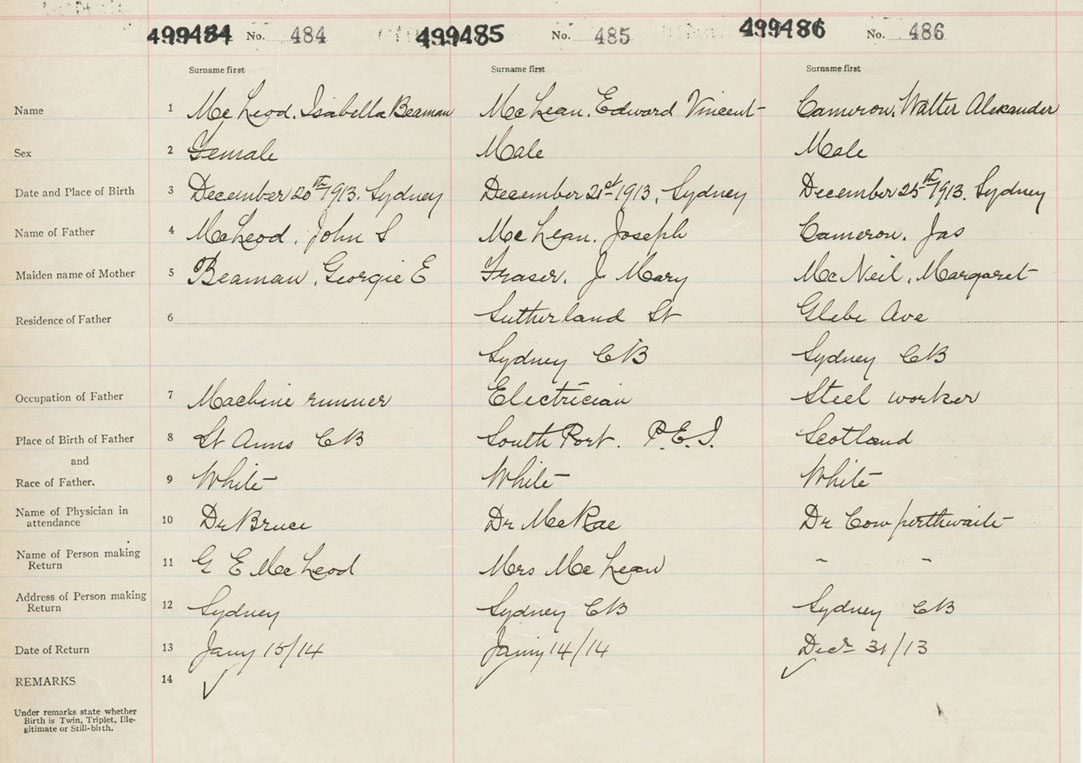 499484 No. 484 499485 No. 485 499486 No. 486
Surname first Surname first Surname first
Name 1 McLeod, Isabella Beaman McLean, Edward Vincent Cameron, Walter Alexander
Sex 2 Female Male Male
Date and Place of Birth 3 December 20th 1913. Sydney December 21st 1913, Sydney December 25th 1913. Sydney
Name of Father 4 McLeod, John S McLean, Joseph Cameron, Jas
Maiden name of Mother 5 Beaman, Georgie E Fraser, J Mary McNeil, Margaret
Residence of Father 6 Sutherland St Glebe Ave
Sydney CB Sydney CB
Occupation of Father 7 Machine runner Electrician Steel worker
Place of Birth of Father 8 St Anns CB South Port. P.E.I. Scotland
and
Race of Father. 9 White White White
Name of Physician in
attendance 10 Dr Bruce Dr McRae Dr Cowperthwaite
Name of Person making
Return 11 G E McLeod Mrs McLean - -
Address of Person making
Return 12 Sydney Sydney CB Sydney CB
Date of Return 13 Jany 15/14 Jany 14/14 Decr 31/13
REMARKS 14
Under remarks state whether
Birth is Twin, Triplet, Ille-
gitimate or Still-birth.